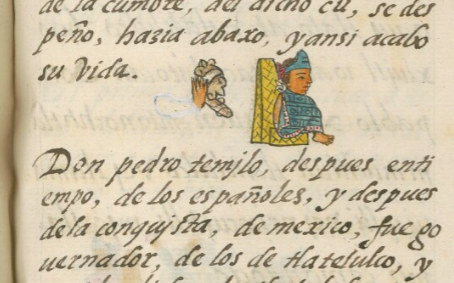 de la cumbre, del dicho cu, se des
peño, hazia abaxo, y ansi acabo
su vida.
Don pedro temjlo, despues enti
empo, de los españoles, y despues
de la conqujsta, de mexico, fue go
uernador, de los de tlatelulco, y